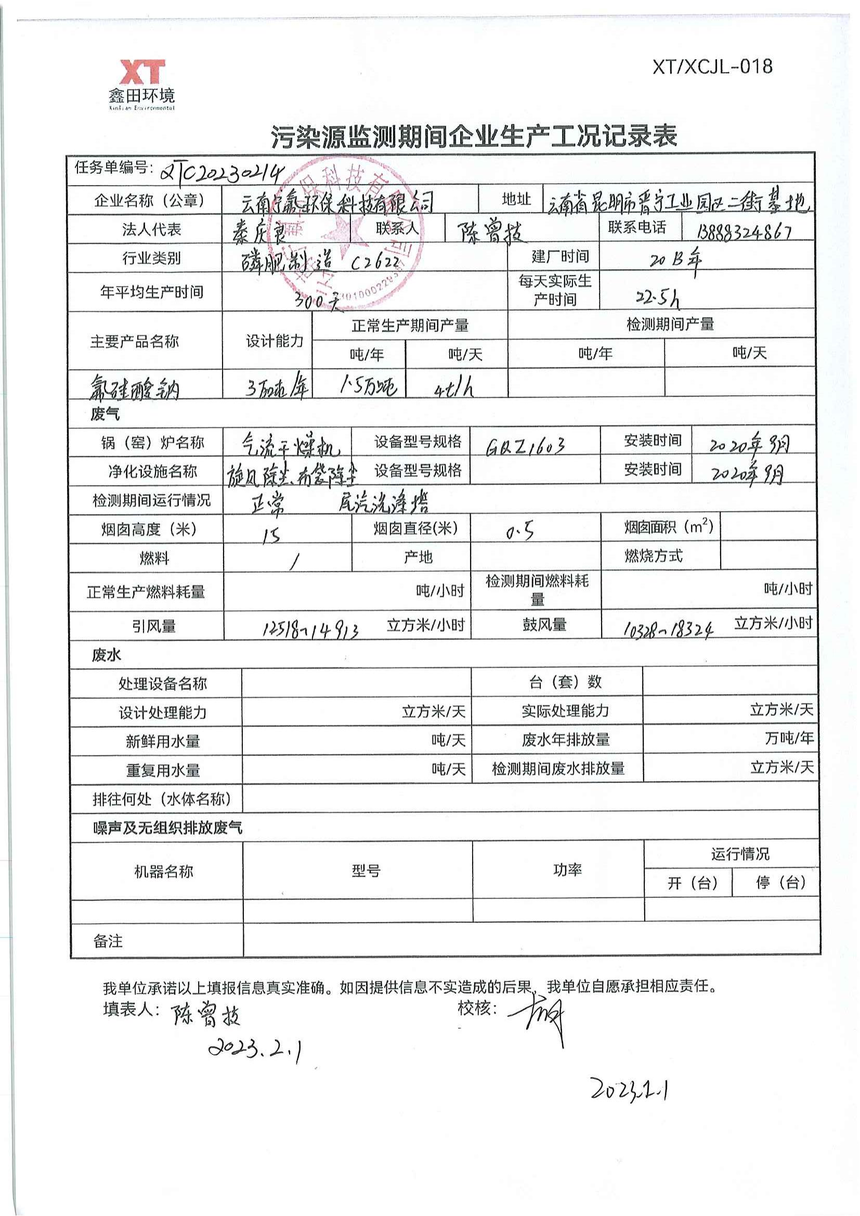 XT
鑫田环境
XinTian Environmental
XT/XCJL-018
污染源监测期间企业生产工况记录表
任务单编号: XTC20230214
企业名称（公章） 云南氟环保科技有限公司 地址 云南省昆明市晋宁工业园区二街基地
法人代表 秦庆良 联系人 陈曾技 联系电话 13888324867
行业类别 磷肥制造 C2622 建厂时间 2013年
年平均生产时间 300天 每天实际生产时间 22.5h
主要产品名称 设计能力 正常生产期间产量 检测期间产量
吨/年 吨/天 吨/年 吨/天
氟硅酸钠 3万吨/年 1.5万吨 4t/h
废气
锅（窑）炉名称 气流干燥机 设备型号规格 GQZ1603 安装时间 2020年9月
净化设施名称 旋风除尘、布袋除尘 设备型号规格 安装时间 2020年9月
检测期间运行情况 正常 尾汽洗涤塔
烟囱高度（米） 15 烟囱直径(米) 0.5 烟囱面积（m²）
燃料 / 产地 燃烧方式
正常生产燃料耗量 吨/小时 检测期间燃料耗量 吨/小时
引风量 12518~14913 立方米/小时 鼓风量 10328~18324 立方米/小时
废水
处理设备名称 台（套）数
设计处理能力 立方米/天 实际处理能力 立方米/天
新鲜用水量 吨/天 废水年排放量 万吨/年
重复用水量 吨/天 检测期间废水排放量 立方米/天
排往何处（水体名称）
噪声及无组织排放废气
机器名称 型号 功率 运行情况
开（台） 停（台）
备注
我单位承诺以上填报信息真实准确。如因提供信息不实造成的后果，我单位自愿承担相应责任。
填表人: 陈曾技 校核:
2023.2.1
2023.2.1